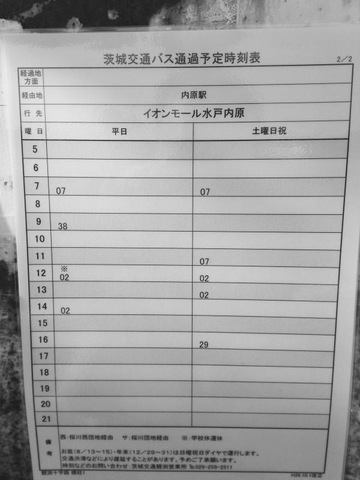 茨城交通バス通過予定時刻表
2/2
経過地方面
経由地 内原駅
行先 イオンモール水戸内原
曜日 平日 土曜日祝
5
6
7 07 07
8
9 38
10
11 07
12 ※02 02
13 02
14 02
15
16 29
17
18
19
20
21
備考
西:桜川西団地経由 サ:桜川団地経由 ※:学校休運休
お盆(8/13~15)・年末(12/29~31)は日曜祝日ダイヤで運行します。
交通渋滞などにより遅延することがあります。予めご了承願います。
時刻などのお問い合わせ 茨城交通